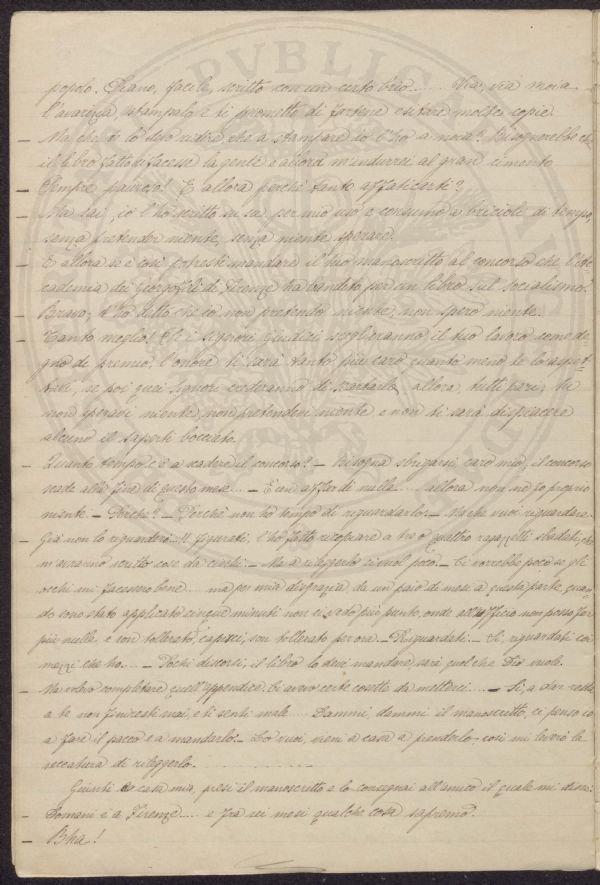 popolo. Piano, facile, scritto con un certo brio..... Via, via moia
l'avarizia, stampalo e ti prometto di fartene esitare molte copie.
— Ma che ti lo devo ridire che a stampare io l'ho a noia? Bisognerebbe che
il libro fatto da facesse la gente e allora m'indurrei al gran cimento
— Sempre pauroso! E allora perché tanto affaticarti?
— Ma sai, io l'ho scritto su su per mio uso e consumo a briciole di tempo,
senza pretender niente, senza niente sperare.
— E allora se è così potresti mandare il tuo manoscritto al concorso che l'Ac-
cademia dei Georgofili di Firenze ha bandito per un libro sul Socialismo.
— Bravo, t'ho detto che io non pretendo niente, non spero niente.
— Tanto meglio! Se i signori Giudici sceglieranno il tuo lavoro come de-
gno di premio, l'onore ti sarà tanto più caro quanto meno te lo aspet-
tavi, se poi quei signori crederanno di scartarlo, allora, tutti pari, tu
non speravi niente, non pretendevi niente e non ti sarà dispiacere
alcuno il saperti bocciato.
— Quanto tempo c'è a scadere il concorso? — Bisogna sbrigarsi, caro mio, il concorso
scade alla fine di questo mese.... — È un affar di nulla..... allora non ne fo proprio
niente. — Perché? — Perché non ho tempo di riguardarlo. — Ma che vuoi riguardare.
— Già non lo riguarderò. Figurati, l'ho fatto ricopiare a tre o quattro ragazzetti sbadati, che
m'avranno scritto cose da ciechi. — Ma a rileggerlo ci vuol poco. — Ci vorrebbe poco se gli
occhi mi facessero bene.... ma per mia disgrazia da un paio di mesi a questa parte, quan-
do sono stato applicato cinque minuti non ci vedo più punto, onde all'Ufficio non posso far
più nulla e son tollerato, capisci, son tollerato per ora. — Riguardati. — Sì, riguardati coi
mezzi che ho.... — Pochi discorsi, il libro lo devi mandare, sarà quel che Dio vuole.
— Ma volevo completare quell'appendice. Ci avevo certe cosette da metterci..... — Sì, a dar retta
a te non finiresti mai, e ti senti male.... Dammi, dammi il manoscritto, ci penso io
a fare il pacco e a mandarlo. — Lo vuoi, vieni a casa a prenderlo così mi leverò la
seccatura di rileggerlo. . . . . . . . . . . . .
Giunti a casa mia, presi il manoscritto e lo consegnai all'amico il quale mi disse:
— Domani è a Firenze.... e fra sei mesi qualche cosa sapremo.
— Bha!